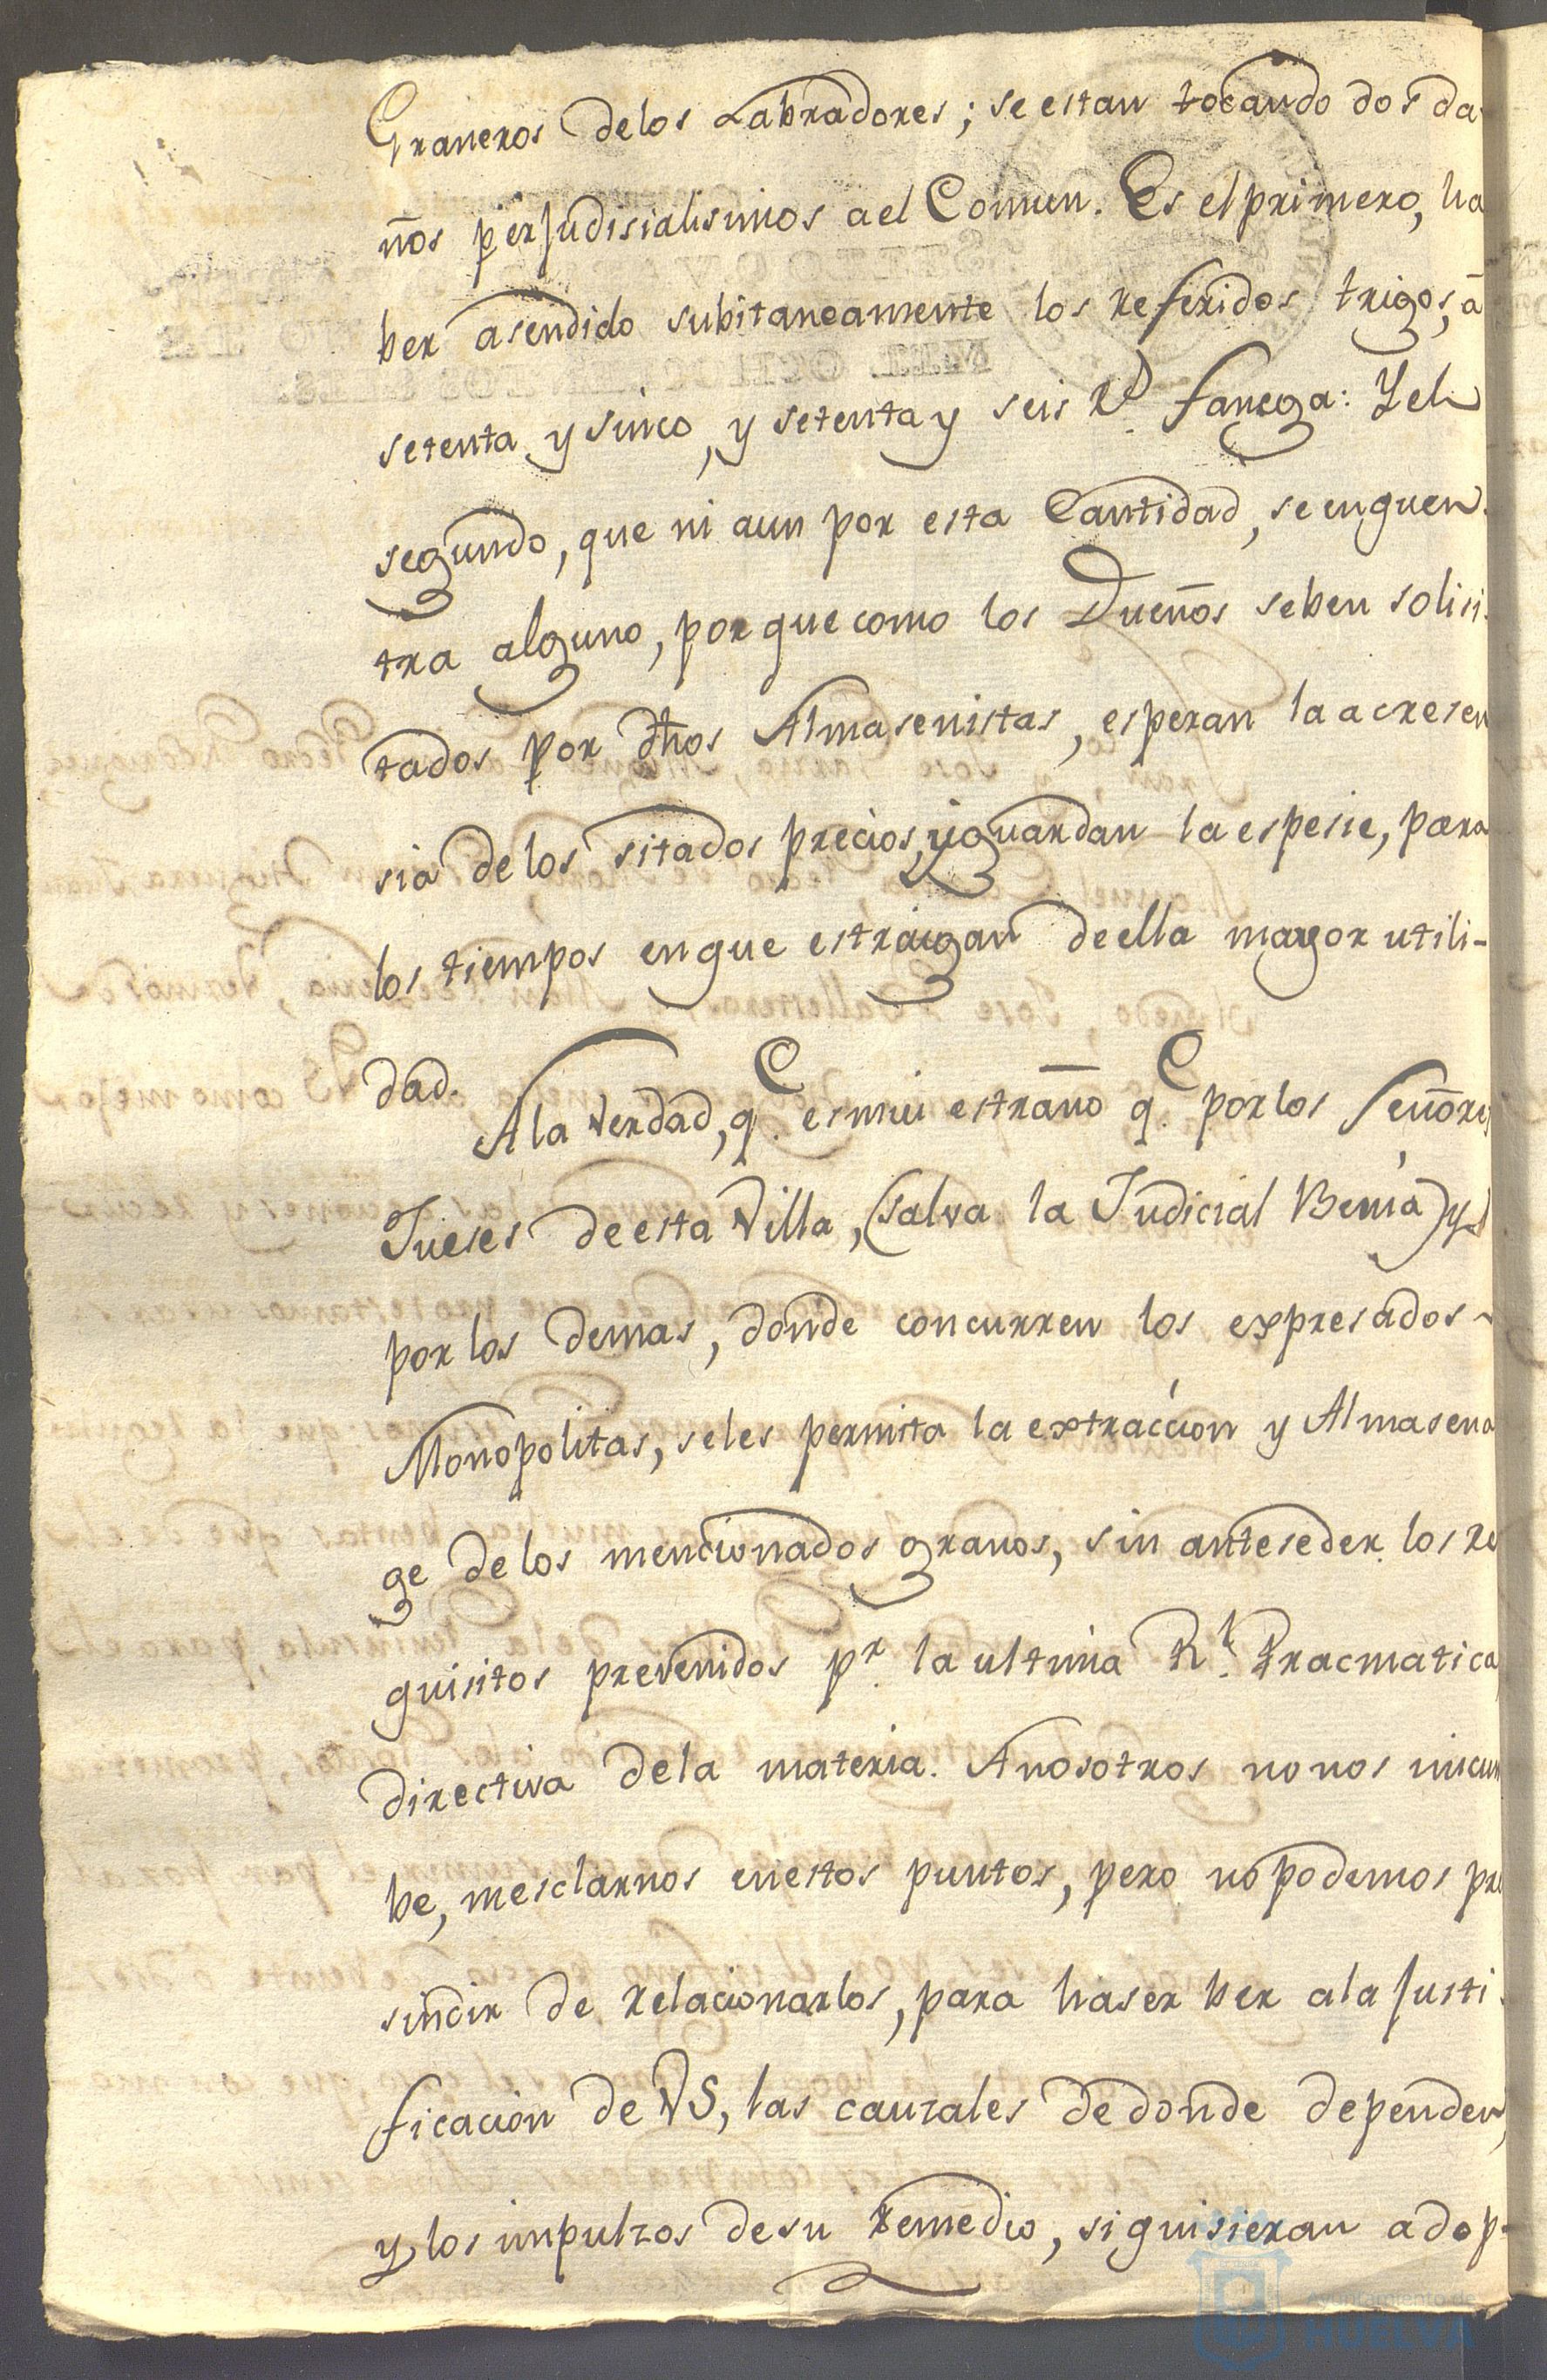 Graneros delos Labradores; se estan tocando dos da-
ños perjudisialisimos a el Comun. Es el primero, ha
ber asendido subitaneamente los referidos trigos, â
setenta y sinco, y setenta y seis R.^s fanega: Y el
segundo, que ni aun por esta Cantidad, se enquen-
tra alguno, porque como los Dueños seben solisi-
tados por dhos Almasenistas, esperan la acresen
sia de los sitados precios, y guardan la espesie, para
los tiempos en que estraigan de ella mayor utili-
dad.
A la Verdad, q.^e es mui estraño q.^e por los Señores
Jueses de esta Villa, (salva la Judicial Benia) y
por los demas, donde concurren los expresados -
Monopolitas, seles permita la extraccion y Almasena
ge delos mencionados granos, sin anteseder los re
quisitos prevenidos p.^r la ultima R.^l Pracmatica
directiva dela materia. A nosotros no nos incum
be, mesclarnos enestos puntos, pero no podemos pre
sindir de relacionarlos, para haser ber ala Justi-
ficacion de VS, las causales de donde dependen,
y los impulzos de su remedio, si quisieran adop-
Ayuntamiento de
HUELVA